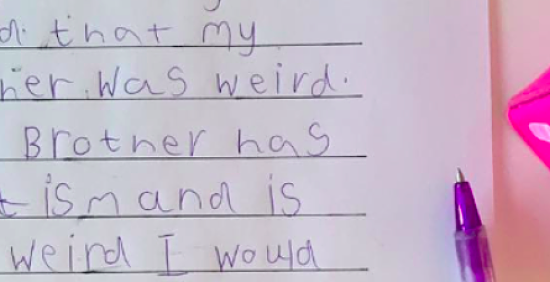 d. that my
her. was weird.
Brother has
t ism and is
weird I would